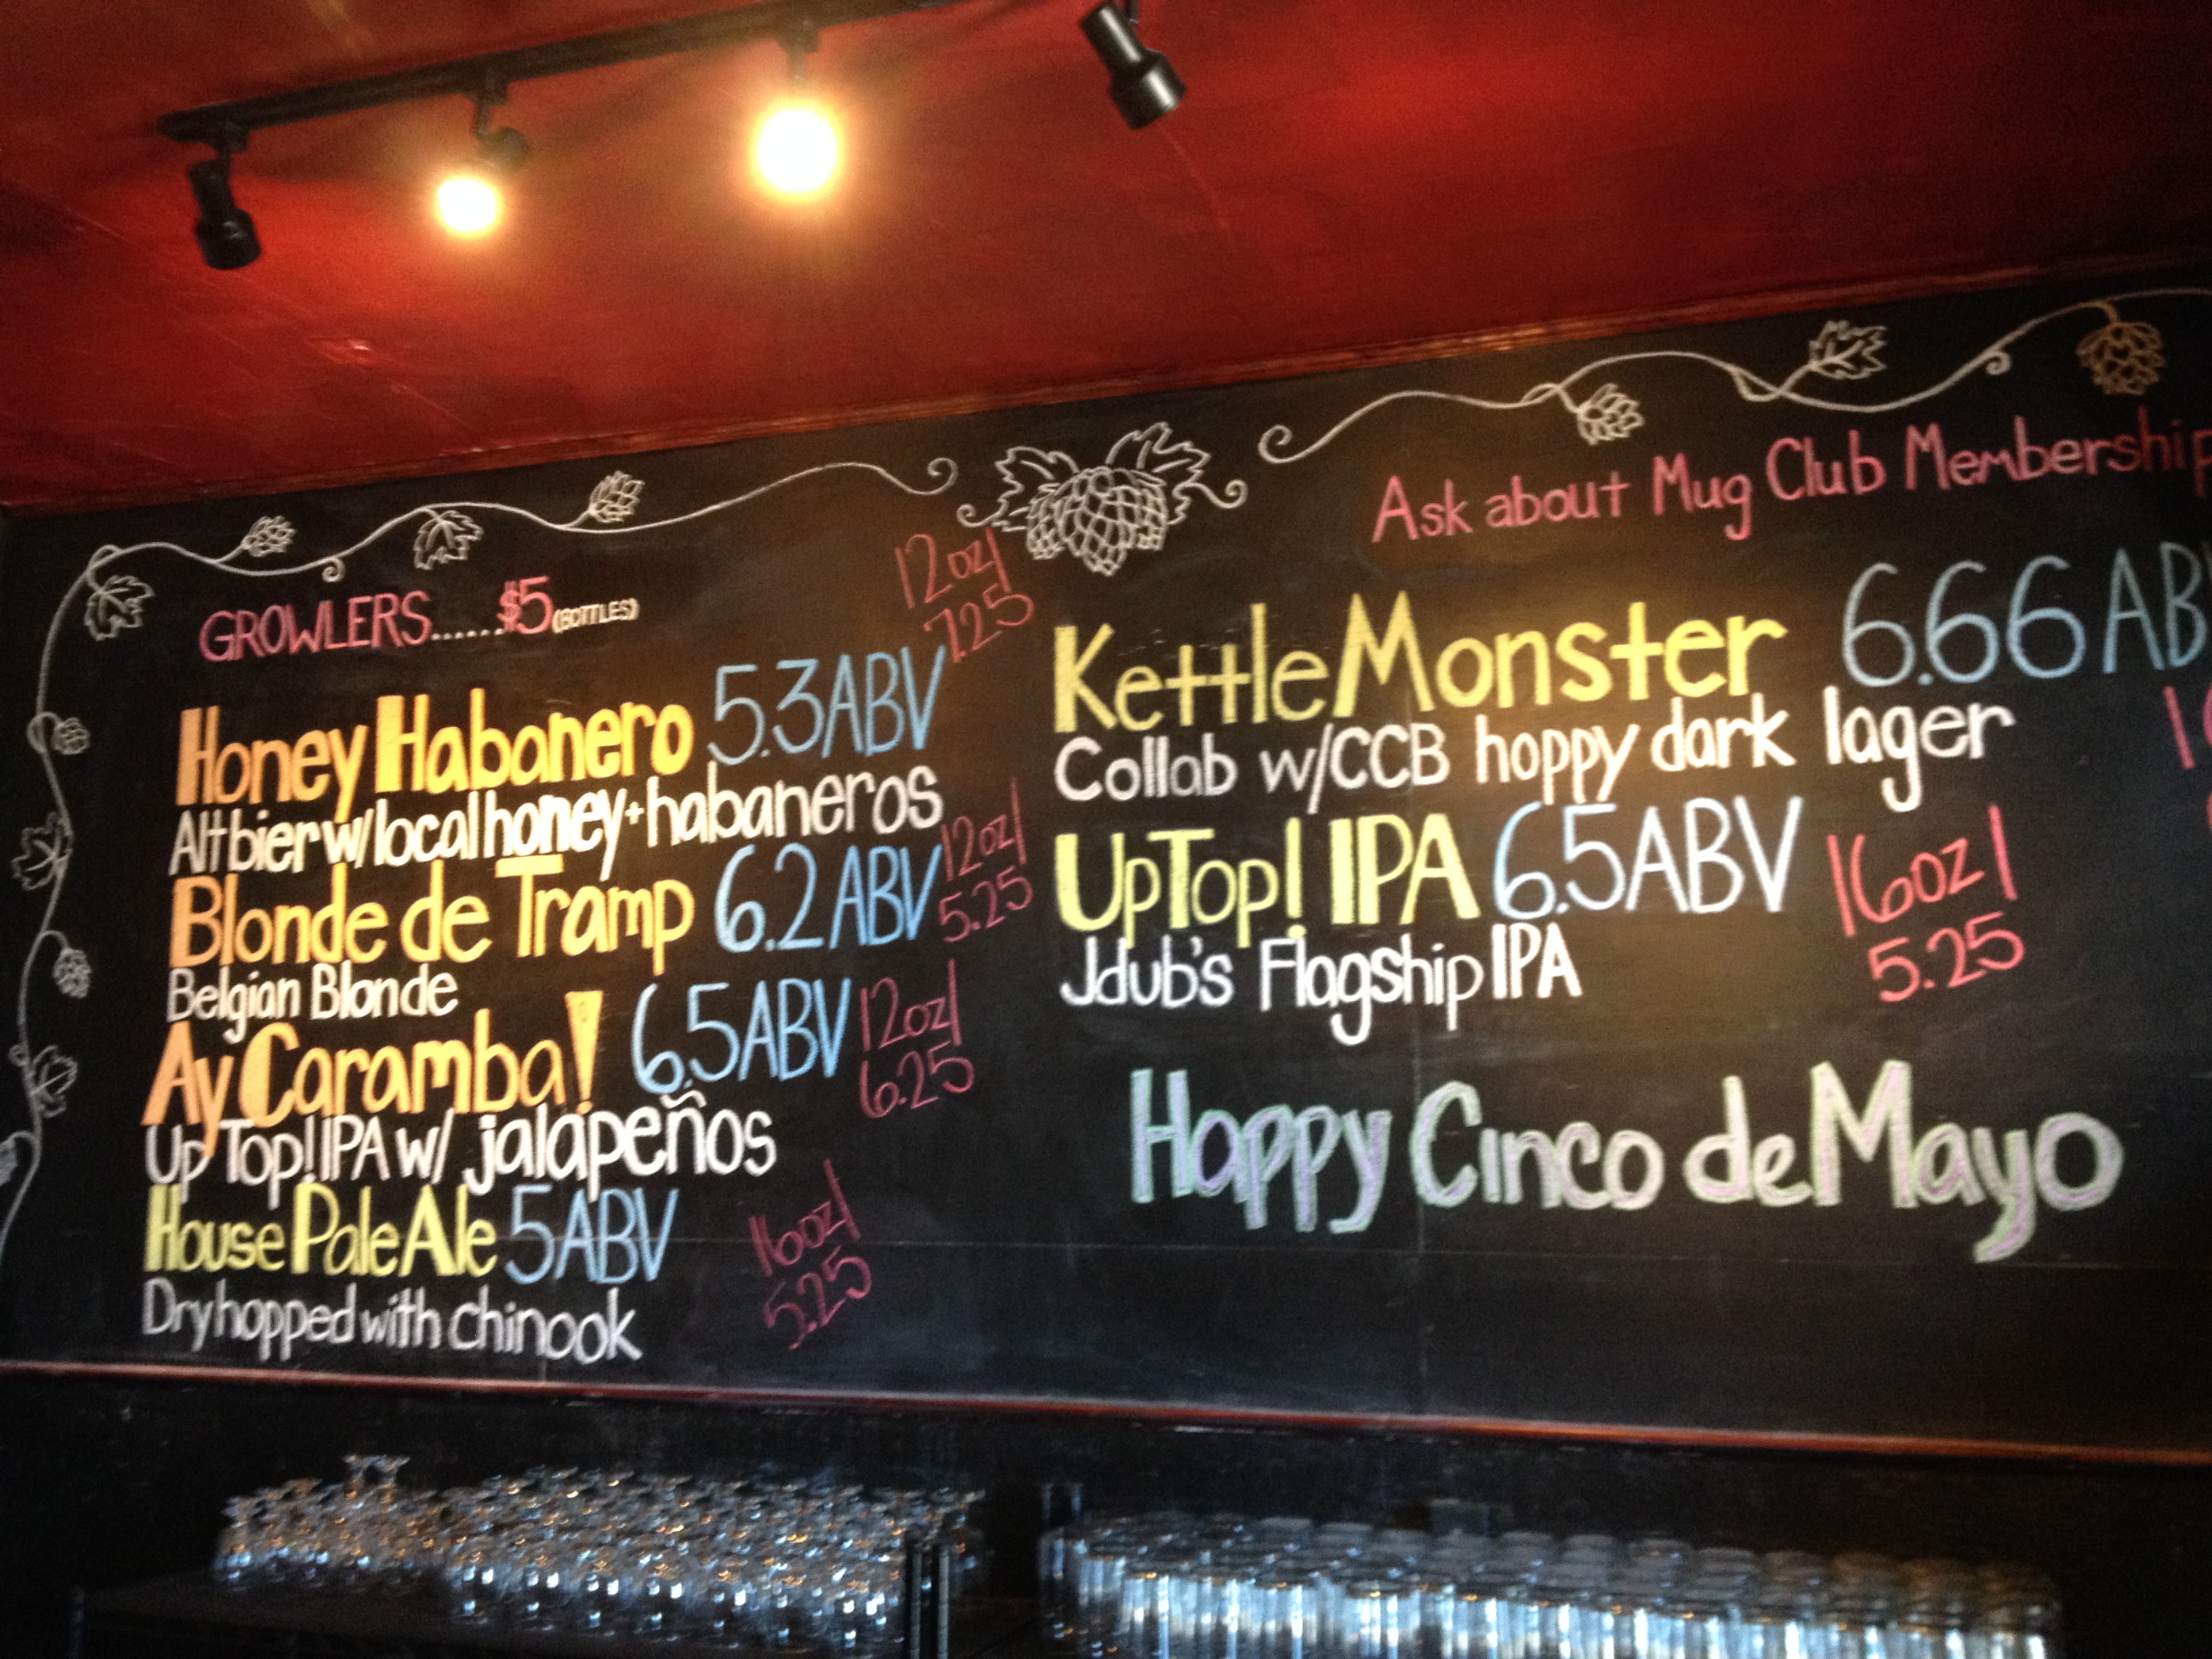 GROWLERS......$5 (BOTTLES)
Honey Habanero 5.3ABV 12oz/
7.25
Altbier w/local honey + habaneros
Blonde de Tramp 6.2 ABV 12oz/
5.25
Belgian Blonde
Ay Caramba! 6.5ABV 12oz/
6.25
Up Top! IPA w/ jalapeños
House Pale Ale 5ABV 16oz/
5.25
Dryhopped with chinook
Ask about Mug Club Membership
Kettle Monster 6.66 AB
Collab w/CCB hoppy dark lager
UpTop! IPA 6.5ABV 16oz/
5.25
Jdub's Flagship IPA
Happy Cinco de Mayo